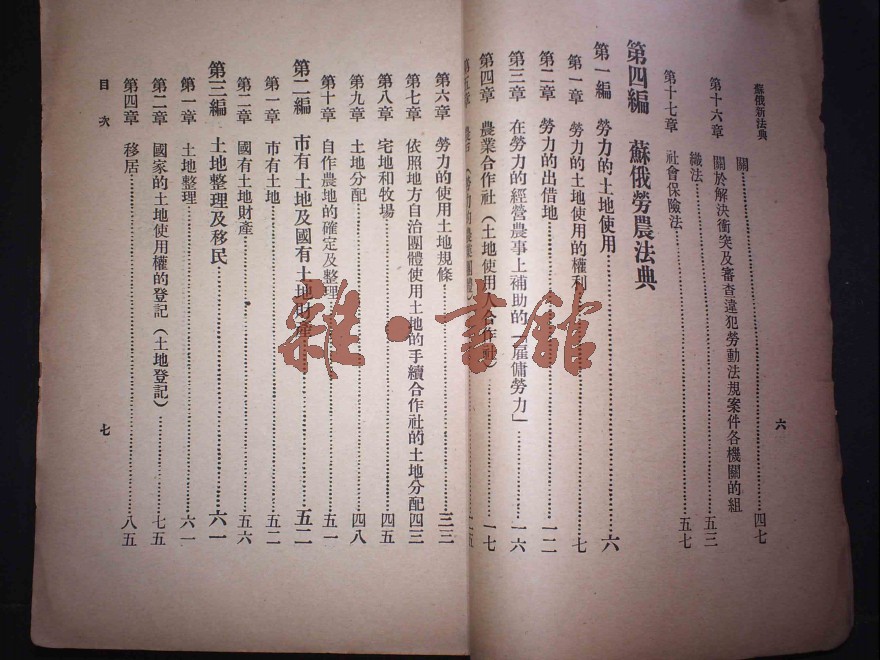 蘇俄新法典
六
關⋯⋯四七
第十六章 關於解決衝突及審查違犯勞動法規案件各機關的組
織法⋯⋯五三
第十七章 社會保險法⋯⋯五七
第四編 蘇俄勞農法典
第一編 勞力的土地使用⋯⋯六
第一章 勞力的土地使用的權利⋯⋯七
第二章 勞力的出借地⋯⋯一二
第三章 在勞力的經營農事上補助的「雇傭勞力」⋯⋯一六
第四章 農業合作社（土地使用人合作社）⋯⋯一七
第五章
第六章 勞力的使用土地規條⋯⋯三三
第七章 依照地方自治團體使用土地的手續合作社的土地分配四三
第八章 宅地和牧場⋯⋯四五
第九章 土地分配⋯⋯四八
第十章 自作農地的確定及整理⋯⋯五一
第二編 市有土地及國有土地財產⋯⋯五二
第一章 市有土地⋯⋯五二
第二章 國有土地財產⋯⋯五六
第三編 土地整理及移民⋯⋯六一
第一章 土地整理⋯⋯六一
第二章 國家的土地使用權的登記（土地登記）⋯⋯七五
第四章 移居⋯⋯八五
目次
七
雜·書館